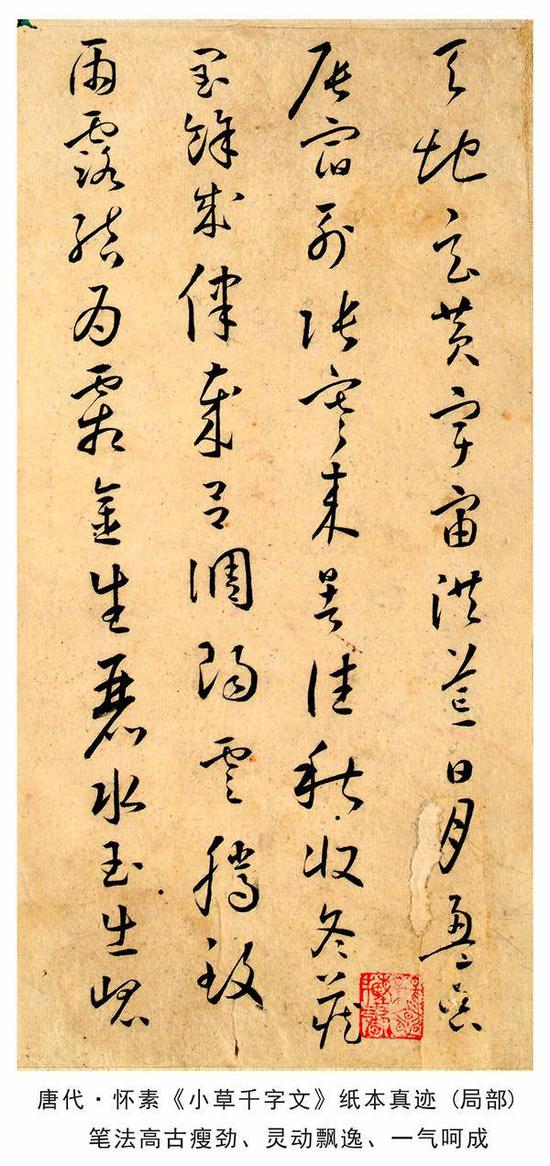 天地玄黄宇宙洪荒日月盈昃
辰宿列張寒来暑往秋收冬藏
閏餘成律歲呂調陽雲騰致
雨露結為霜金生麗水玉出崐
唐代·怀素《小草千字文》纸本真迹（局部）
笔法高古瘦劲、灵动飘逸、一气呵成